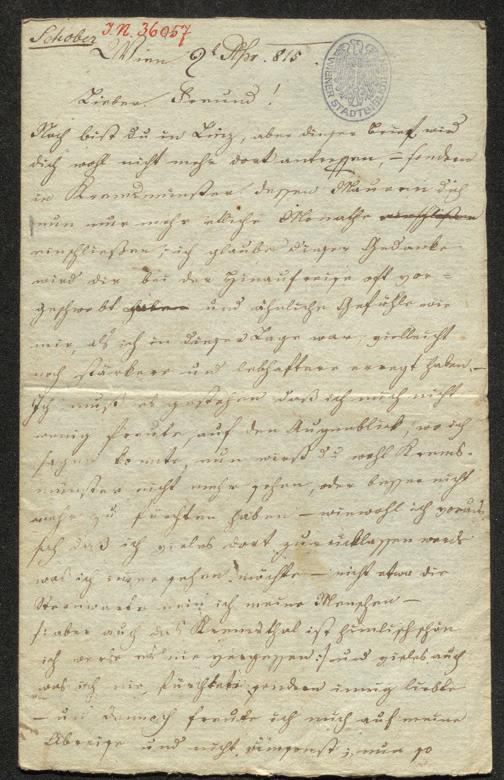 Schober J.N. 36057
Wien 9t Apr. 815.
WIENER STADTBIBLIOTHEK
Lieber Freund!
Noch bist du in Linz, aber dieser Brief wird
dich wohl nicht mehr dort antreffen, – sondern
in Kremsmünster dessen Mauern dich
nun nur mehr etliche Monathe
einschließen; ich glaube dieser Gedanke
wird dir bei der Hinaufreise oft vor=
geschwebt haben und ähnliche Gefühle wie
mir, als ich in dieser Lage war, vielleicht
noch stärkere und lebhaftere erregt haben. –
Ich muß es gestehen daß ich mich nicht
wenig freute, auf den Augenblick, wo ich
sagen konnte, nun wirst du wohl Krems=
münster nicht mehr sehen, oder besser nicht
mehr zu fürchten haben – wiewohl ich voraus
sah daß ich vieles dort zurücklassen werde
was ich immer sehen möchte – nicht etwa die
Sternwarte nein ich meine Menschen –
/: aber auch das Kremsthal ist himlisch schön
ich werde es nie vergessen :/ und vieles auch
was ich nie fürchtete, sondern innig liebte
– und dennoch freute ich mich auf meine
Abreise und nicht umsonst; nun so